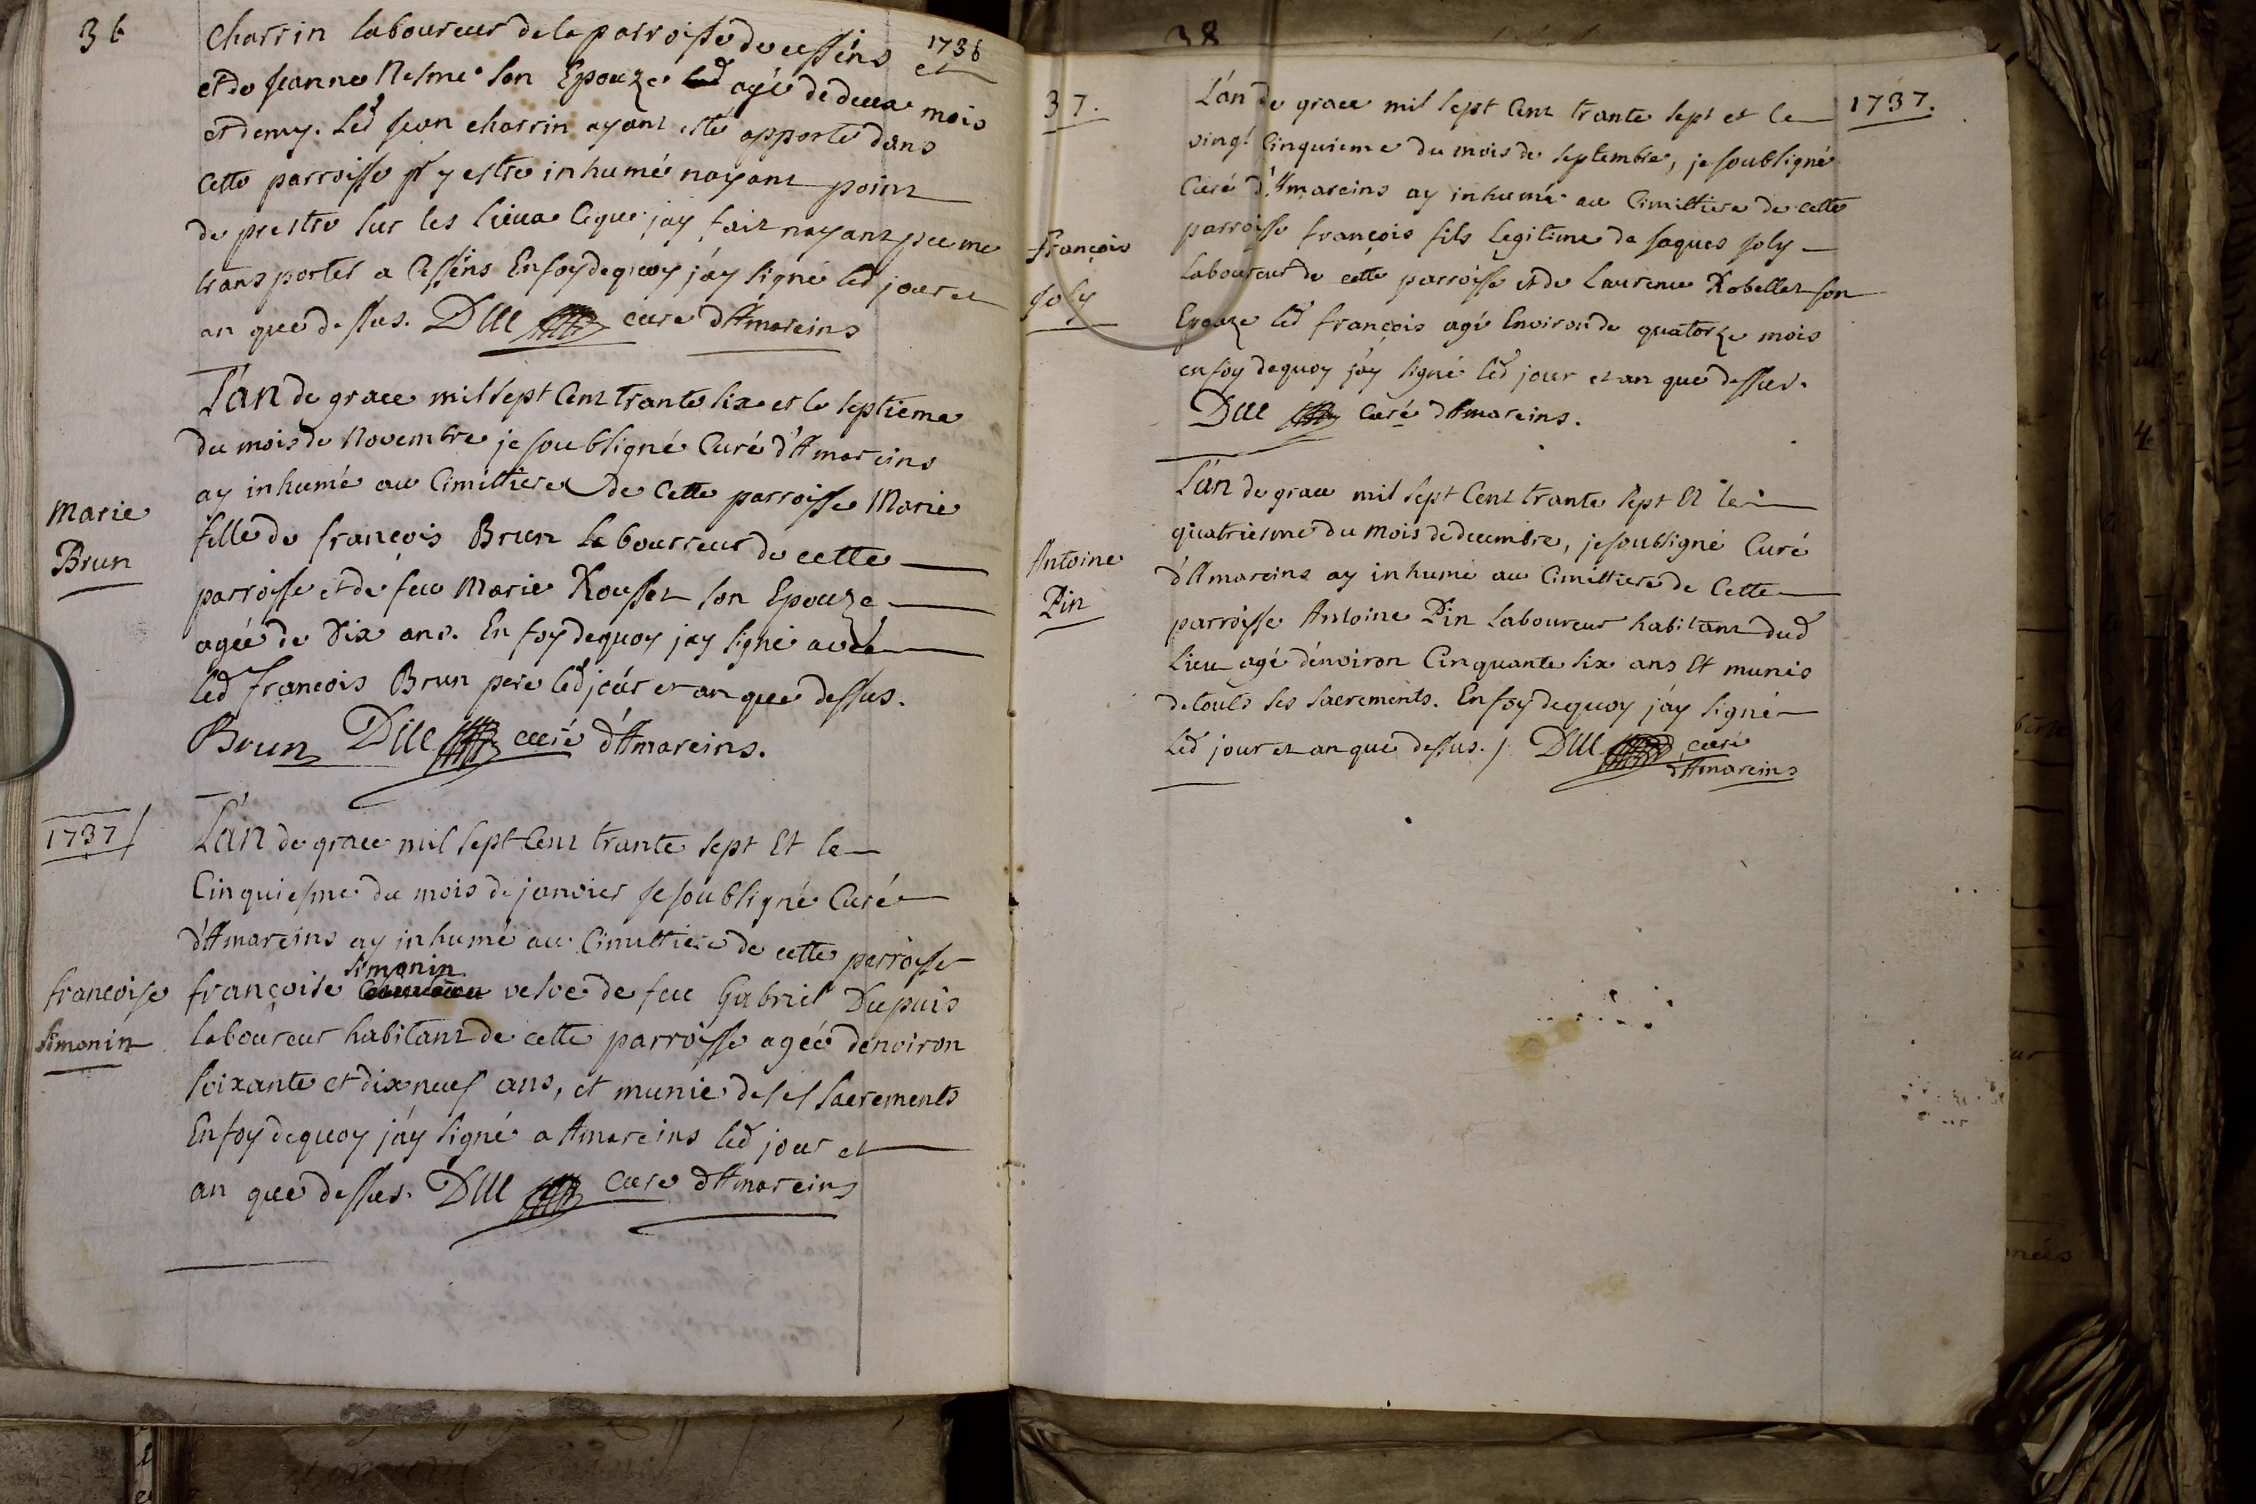 36
1736
Charrin laboureur de la parroisse de cessins et
et de jeanne Nesme son Epouze led agé de deux mois
et demy. Led jean charrin ayant esté apporté dans
cette parroisse pr y estre inhumé nayant point
de prestre sur les lieux ceque jay fait nayant peu me
transporter a Cessins En foy de quoy j'ay signé led jour et
an que dessus. curé d'Amareins
L'an de grace mil sept Cent trante six et le septieme
du mois de Novembre je soubsigné Curé d'Amareins
ay inhumé au Cimittiere de Cette parroisse Marie
Marie
Brun
fille de françois Brun laboureur de cette
parroisse et de feue Marie Rousset son Epouze
agée de Dix ans. En foy dequoy jay signé avec
led françois Brun pere led jour et an que dessus.
Brun curé d'Amareins.
1737
L'an de grace mil sept Cent trante sept Et le
Cinquiesme du mois de janvier je soubsigné Curé
d'Amareins ay inhumé au Cimittiere de cette parroisse
simonin
francoise
simonin
françoise vesve de feu Gabriel Dupuis
laboureur habitant de cette parroisse agée d'environ
soixante et dix neuf ans, et munie de ses sacrements
En foy dequoy j'ay signé a Amareins led jour et
an que dessus. Curé d'Amareins
38
37.
1737.
L'an de grace mil sept Cent trante sept et le
vingt Cinquieme du mois de septembre, je soubsigné
Curé d'Amareins ay inhumé au Cimittiere de cette
parroisse françois fils legitime de jaques joly
françois
joly
laboureur de cette parroisse et de Laurence Robellet son
Epouze led françois agé Environ de quatorze mois
en foy dequoy j'ay signé led jour et an que dessus.
Curé d'Amareins.
L'an de grace mil sept Cent trante sept Et le
quatriesme du mois de decembre, je soubsigné Curé
d'Amareins ay inhumé au Cimittiere de Cette
Antoine
Pin
parroisse Antoine Pin Laboureur habitant dud
Lieu agé d'environ Cinquante six ans Et munis
de touts ses sacrements. En foy dequoy j'ay signé
Led jour et an que dessus. curé
d'Amareins